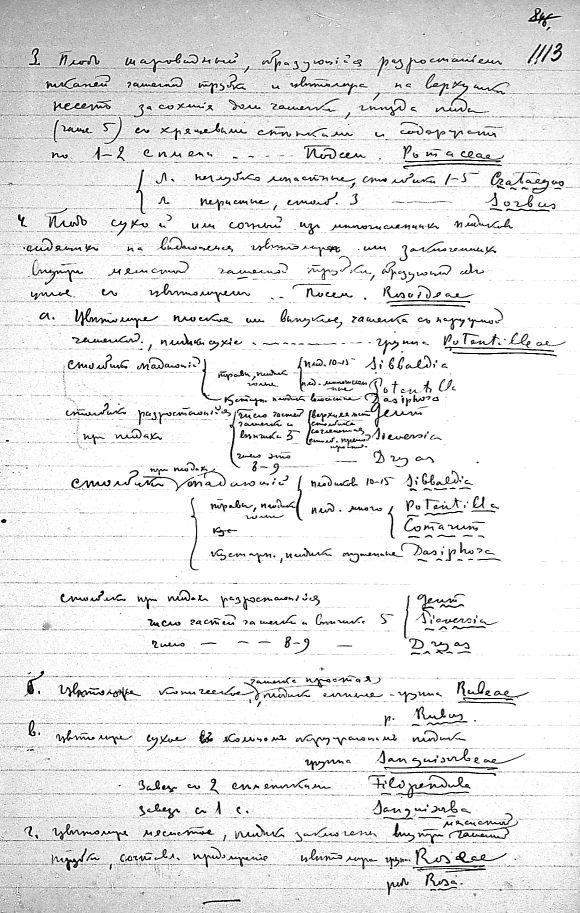 846
1113
3. Плодъ шаровидный, образующійся разростаніем
тканей чашечной трубки и цвѣтоложа, на верхушкѣ
несетъ засохшіе доли чашечки, гнѣзда плода
(чаще 5) съ хрящевыми стѣнками и содержатъ
по 1-2 сѣмени - - - - Подсем. Pomaceae
л. неглубоко лопастные, столбики 1-5 Crataegus
л. перистые, столб. 3 ——— Sorbus
4. Плодъ сухой или сочный изъ многочисленныхъ плодиковъ
сидящихъ на выдающемся цвѣтоложѣ или заключенныхъ
внутри мясистой чашечной трубки, образующей одно
цѣлое съ цвѣтоложемъ .. Подсем. Rosoideae
а. Цвѣтоложе плоское или выпуклое, чашечка съ наружной
чашечкой, плодики сухіе - - - - - - группа Potentilleae
столбики опадающіе
травы, плодики голые
плод. 10-15 Sibbaldia
плод. многочисленные Potentilla
Кустарн. плодики Dasiphora
столбики разростающіеся
при плодахъ
число частей чашечки и вѣнчика 5
Geum
Sieversia
число это 8-9 — Dryas
столбики при плодахъ опадающіе
травы, плодики голые
плодиковъ 10-15 Sibbaldia
плод. много Potentilla
Comarum
кус
кустарн., плодики опушенные Dasiphora
столбики при плодахъ разростающіеся
число частей чашечки и вѣнчика 5
Geum
Sieversia
число — — — 8-9 — Dryas
б. Цвѣтоложе коническое, чашечка простая, плодики сочные - группа Rubeae
р. Rubus.
в. цвѣтоложе сухое въ кольцомъ окружающемъ плодики
группа Sanguisorbeae
Завязь со 2 сѣмяпочками Filipendula
завязь съ 1 с. Sanguisorba
г. цвѣтоложе мясистое, плодики заключены внутри мясистой чашечной
трубки, составл. продолженіе цвѣтоложа группа Roseae.
родъ Rosa.